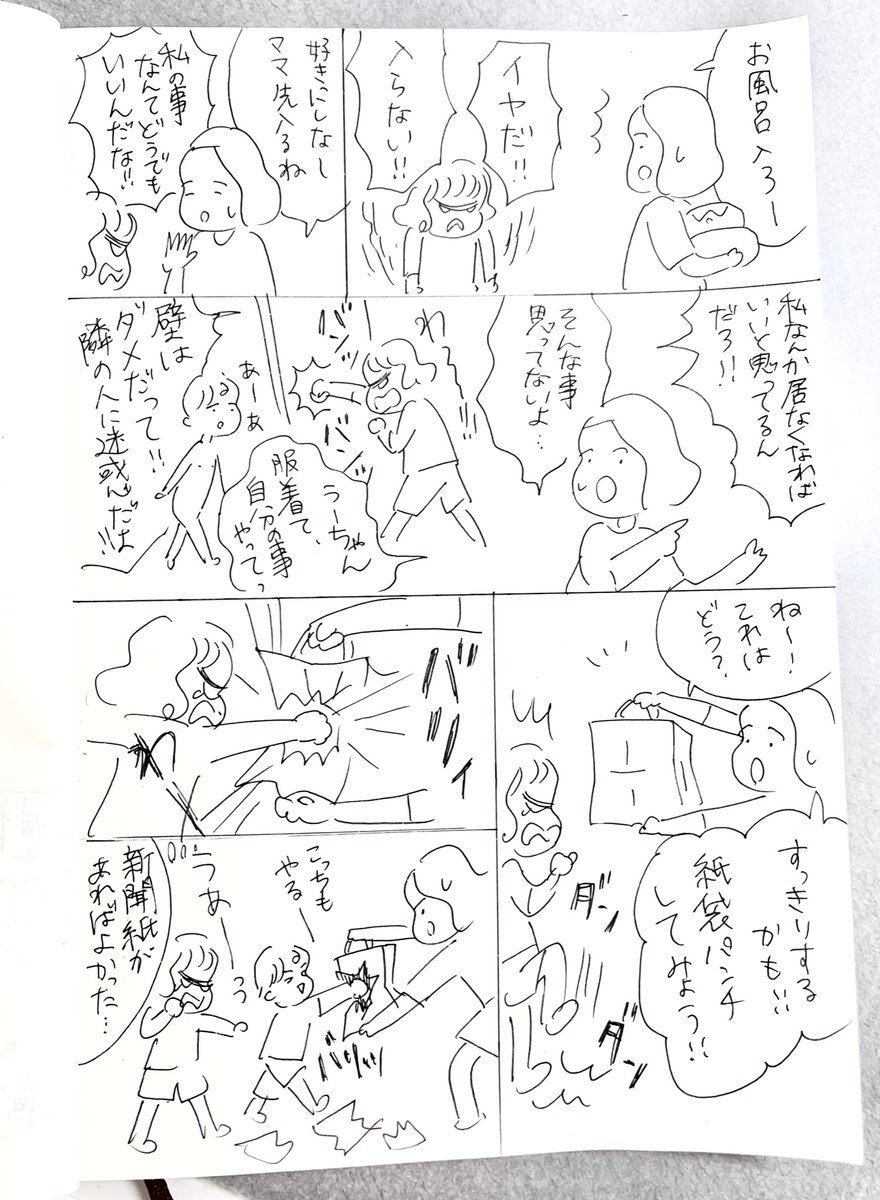 お風呂入ろー
イヤだ!!
入らない!!
好きにしなし
ママ先入るね
私の事
なんてどうでも
いいんだな!!
私なんか居なくなれば
いいと思ってるん
だろ!!
そんな事
思ってないよ…
わ
バンッ
バンッ
うーちゃん
服着て、
自分の事
やってっ
あーあ
壁は
ダメだって!!
隣の人に迷惑だよ!!
ね〜!
これは
どう?
すっきりする
かも!!
紙袋パンチ
してみよう!!
ダン
ダン
バリィ
こっちも
やる
バリッ
うぁ
新聞紙が
あればよかった…